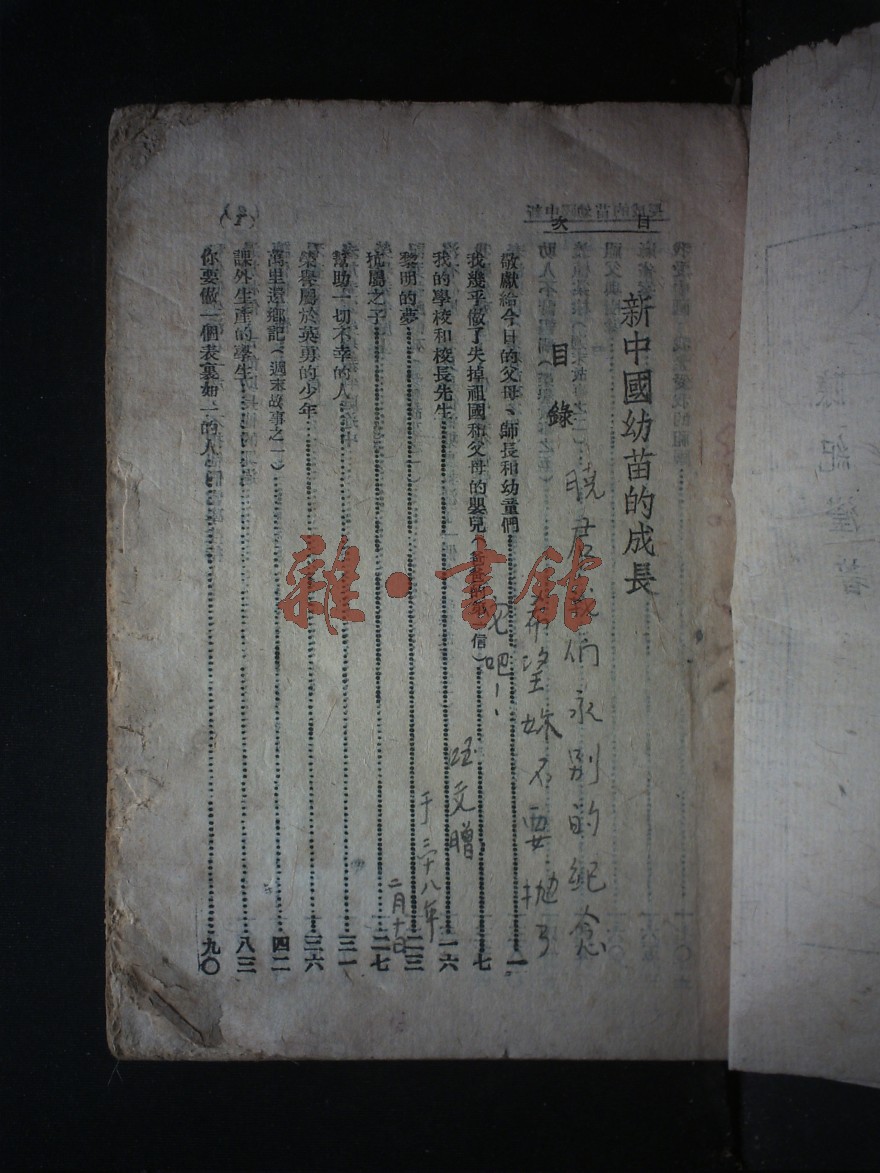 目次
新中國幼苗的成長
目錄
敬獻給今日的父母、師長和幼童們……一
我幾乎做了失掉祖國和父母的嬰兒(……信)……七
我的學校和校長先生……一六
黎明的夢……二三
抗屬之子……二七
幫助一切不幸的人……三一
榮譽屬於英勇的少年……三六
萬里還鄉記(週末故事之一)……四二
課外生產的學生……八三
你要做一個表裏如一的人……九〇
曉君我们永别的紀念
希望妳不要抛了
吧!
贈
于三十八年
二月十日
雜·書館
著